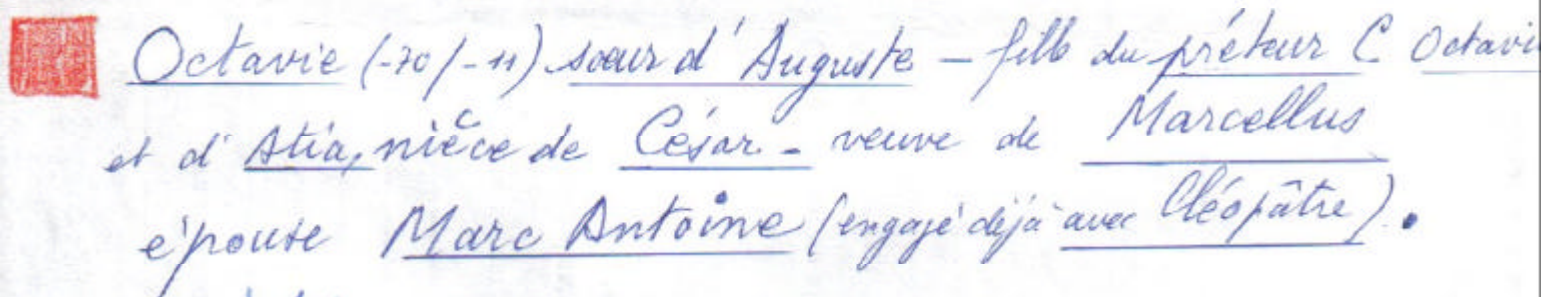 Octavie (-70/-11) sœur d'Auguste - fille du préteur C Octavi
et d'Atia, nièce de César - veuve de Marcellus
épouse Marc Antoine (engagé déjà avec Cléopâtre).